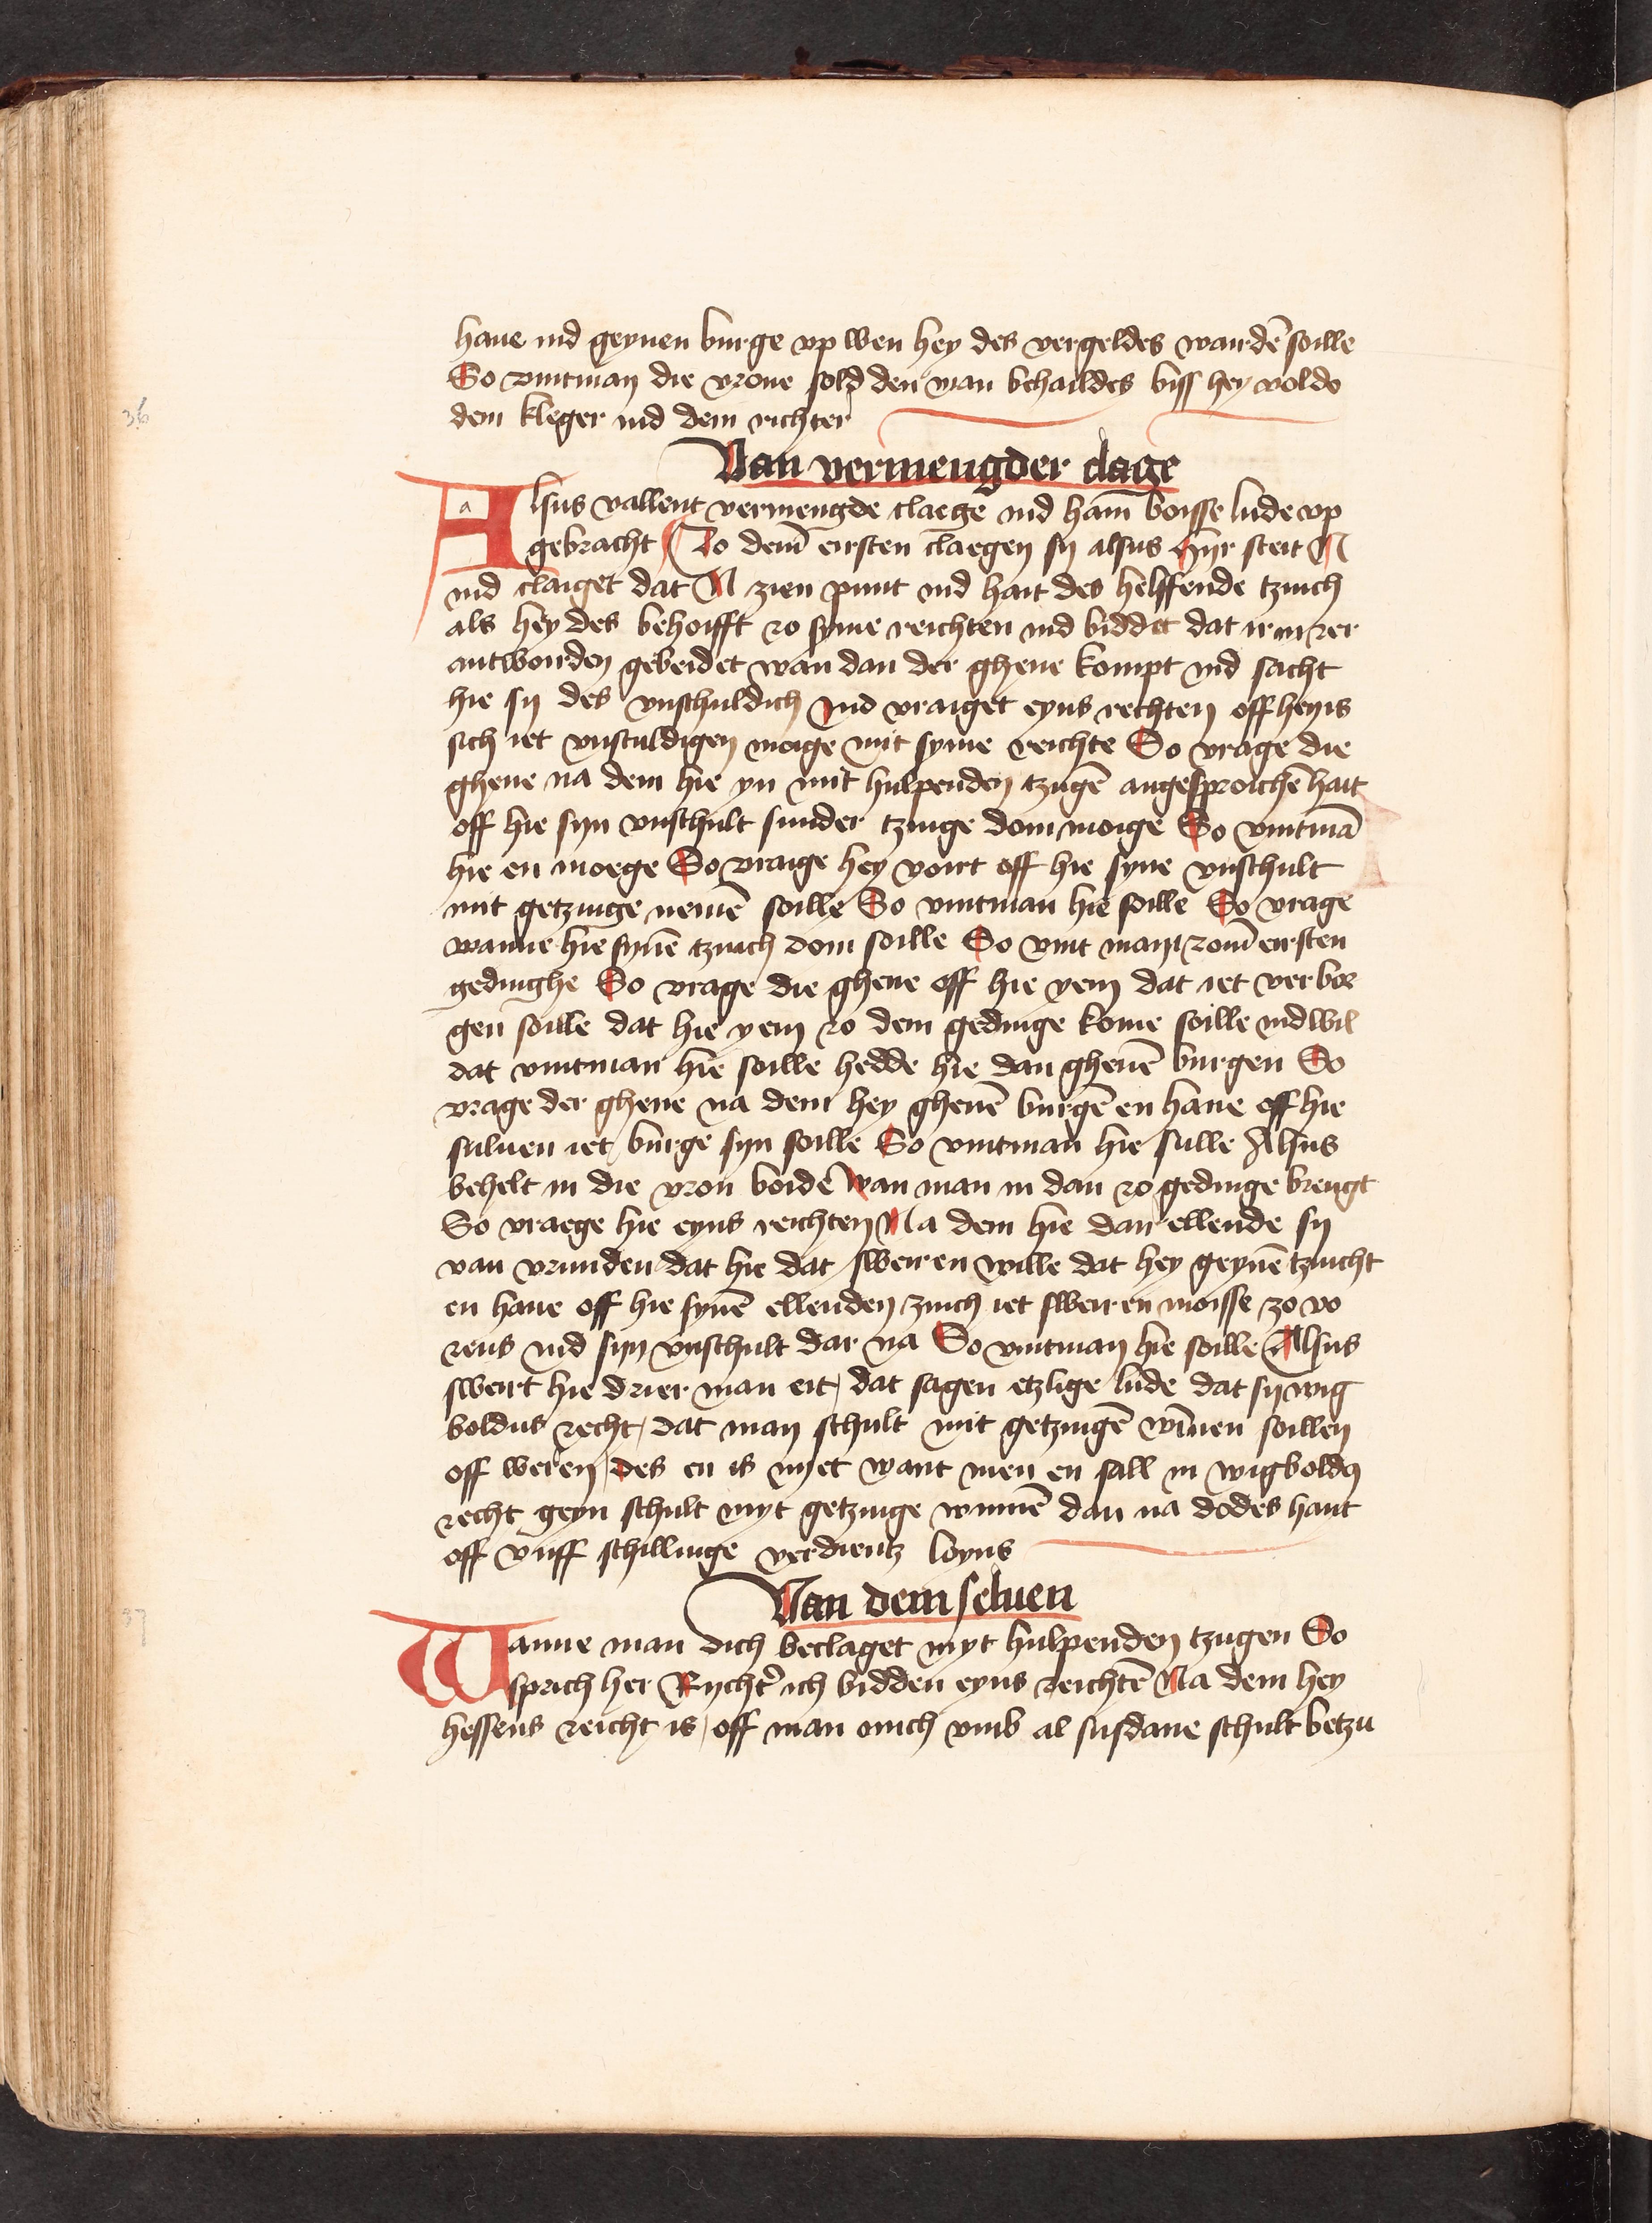 haue ind geynen burge vp wen hey des vergeldes wardē soille
So vintman die vrone sold den man behaildes biss hey volde
dem kleger ind dem richter
36
Van vermengder clage
Alsus vallent vermengde claege ind ham̄ boisse lude vp
gebracht To dem̄ eirsten claegen sy alsus Hyr steit N
ind claiget dat N zien punt ind hait des helffende tzuich
als hey des behoifft zo syme reichten ind biddet dat ir in zer
antworden gebeidet wan dan der ghene kompt ind sacht
hie sy des vnschuldich Ind vraiget eyns rechten off hey is
sich iet vnsculdigen moige mit syme reichte So vrage die
ghene na dem hie yn mit hulpenden tzugē angesproichē hait
off hie syn vnschult sunder tzuige doin moige So vintmā
hie en moege So vraige hey voirt off hie syne vnschult
mit getzuige nemē soille So vintman hie soille So vrage
wanne hie synē tzuich doin soille So vint man zom̄ eirsten
gedinghe So vrage die ghene off hie yem dat iet verbor
gen soille dat hie yem zo dem gedinge kome soille ind wil
dat vintman hie soille hedde hie dan ghenē burgen So
vrage der ghene na dem hey ghenē burgē en haue off hie
seluen iet burge syn soille So vintman hie sulle Alsus
behelt in die vron boidē wan man in dan zo gedinge brengt
So vraege hie eyns reichten Na dem hie dan ellende sy
van vrunden dat hie dat sweiren wille dat hey geynē tzuicht
en haue off hie synē ellenden zuich iet sweiren moisse zo vo
rens ind syn vnschult dar na So vintman hie soille Alsus
sweirt hie drier man eit, dat sagen etzlige lude dat sy wig
boldus recht, dat man schult mit getzuigē wīnen soillen
off weren, des en is nyet want men en sall in wigboldꝰ
recht geyn schult myt getzuige winnē dan na dodes hant
off vunff schillinge verdientz loyns
37
Van dem seluen
Wanne man dich beclaget myt hulpenden tzugen So
sprich her Rychtꝰ ich bidden eyns reichtē Na dem hey
hessens reicht is, off man mich vmb al susdane schult betzu